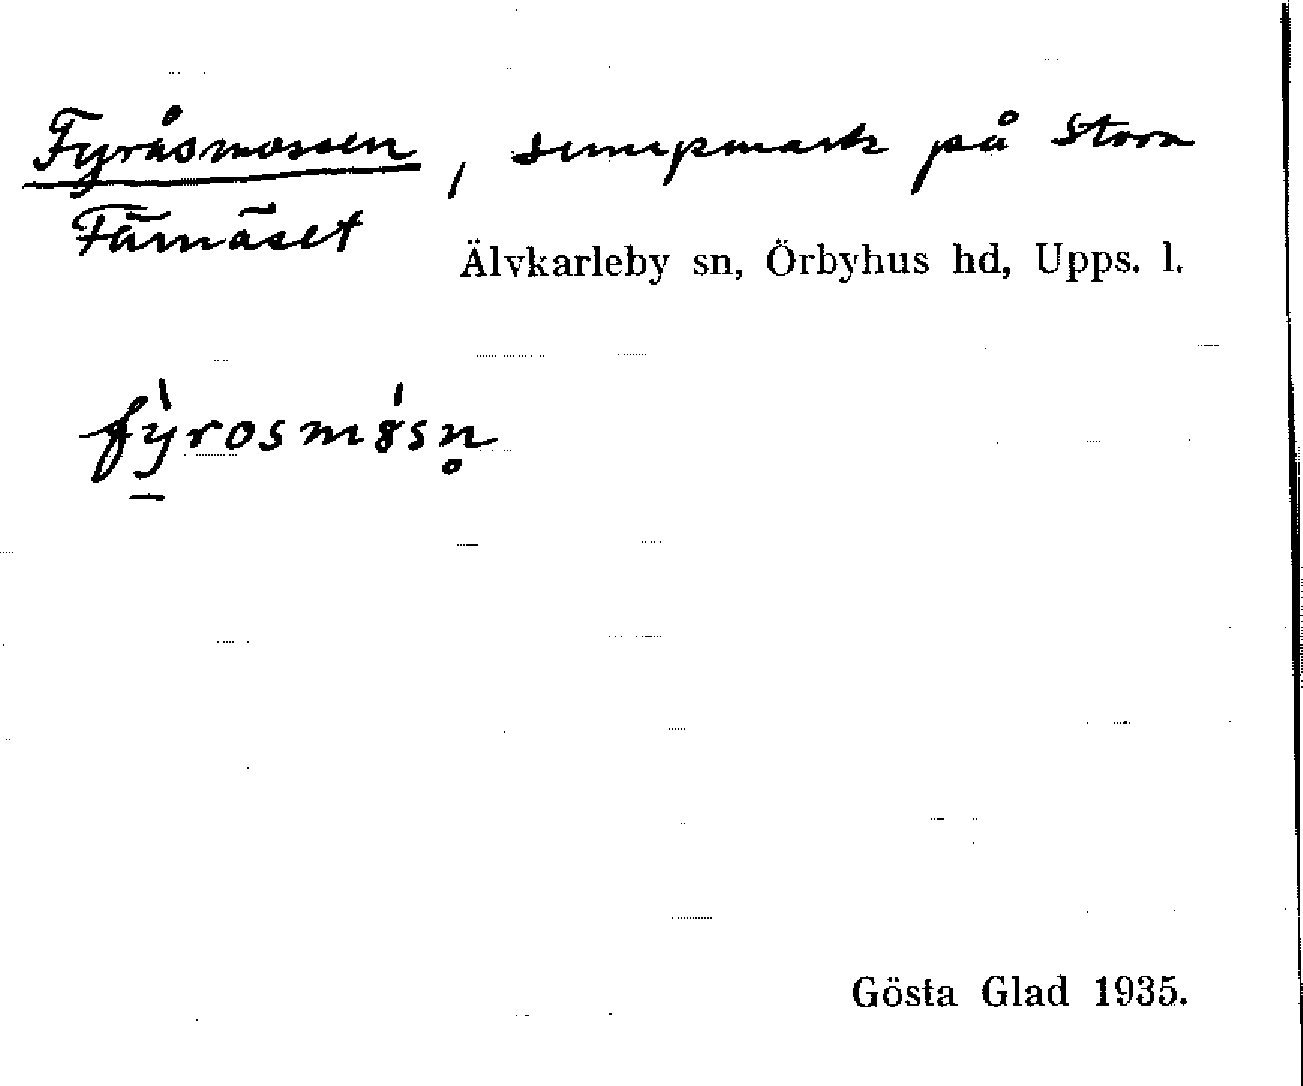 Fyråsmossen, sumpmark på Stora
Färnäset
Älvkarleby sn, Örbyhus hd, Upps. l.
fỳ̱rosmòsn̥
Gösta Glad 1935.